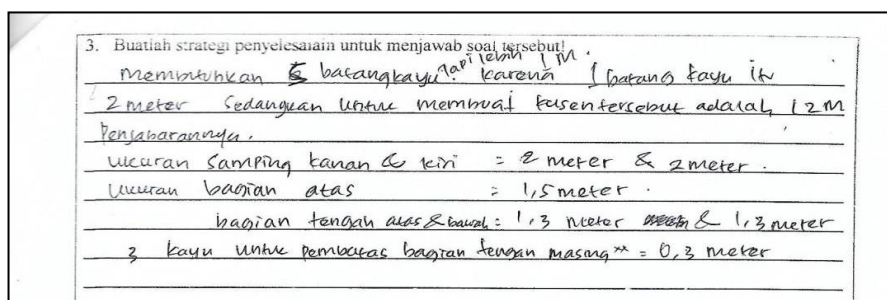 3. Buatlah strategi penyelesaiain untuk menjawab soal tersebut!
tapi lebih 1 m.
membutuhkan 5 batang kayu karena 1 batang kayu itu
2 meter sedangkan untuk membuat kusen tersebut adalah 12 m
Penjabarannya.
ukuran samping kanan & kiri = 2 meter & 2 meter.
Ukuran bagian atas = 1,5 meter.
bagian tengah atas & bawah = 1,3 meter & 1,3 meter
3 kayu untuk pembatas bagian tengan masing" = 0,3 meter